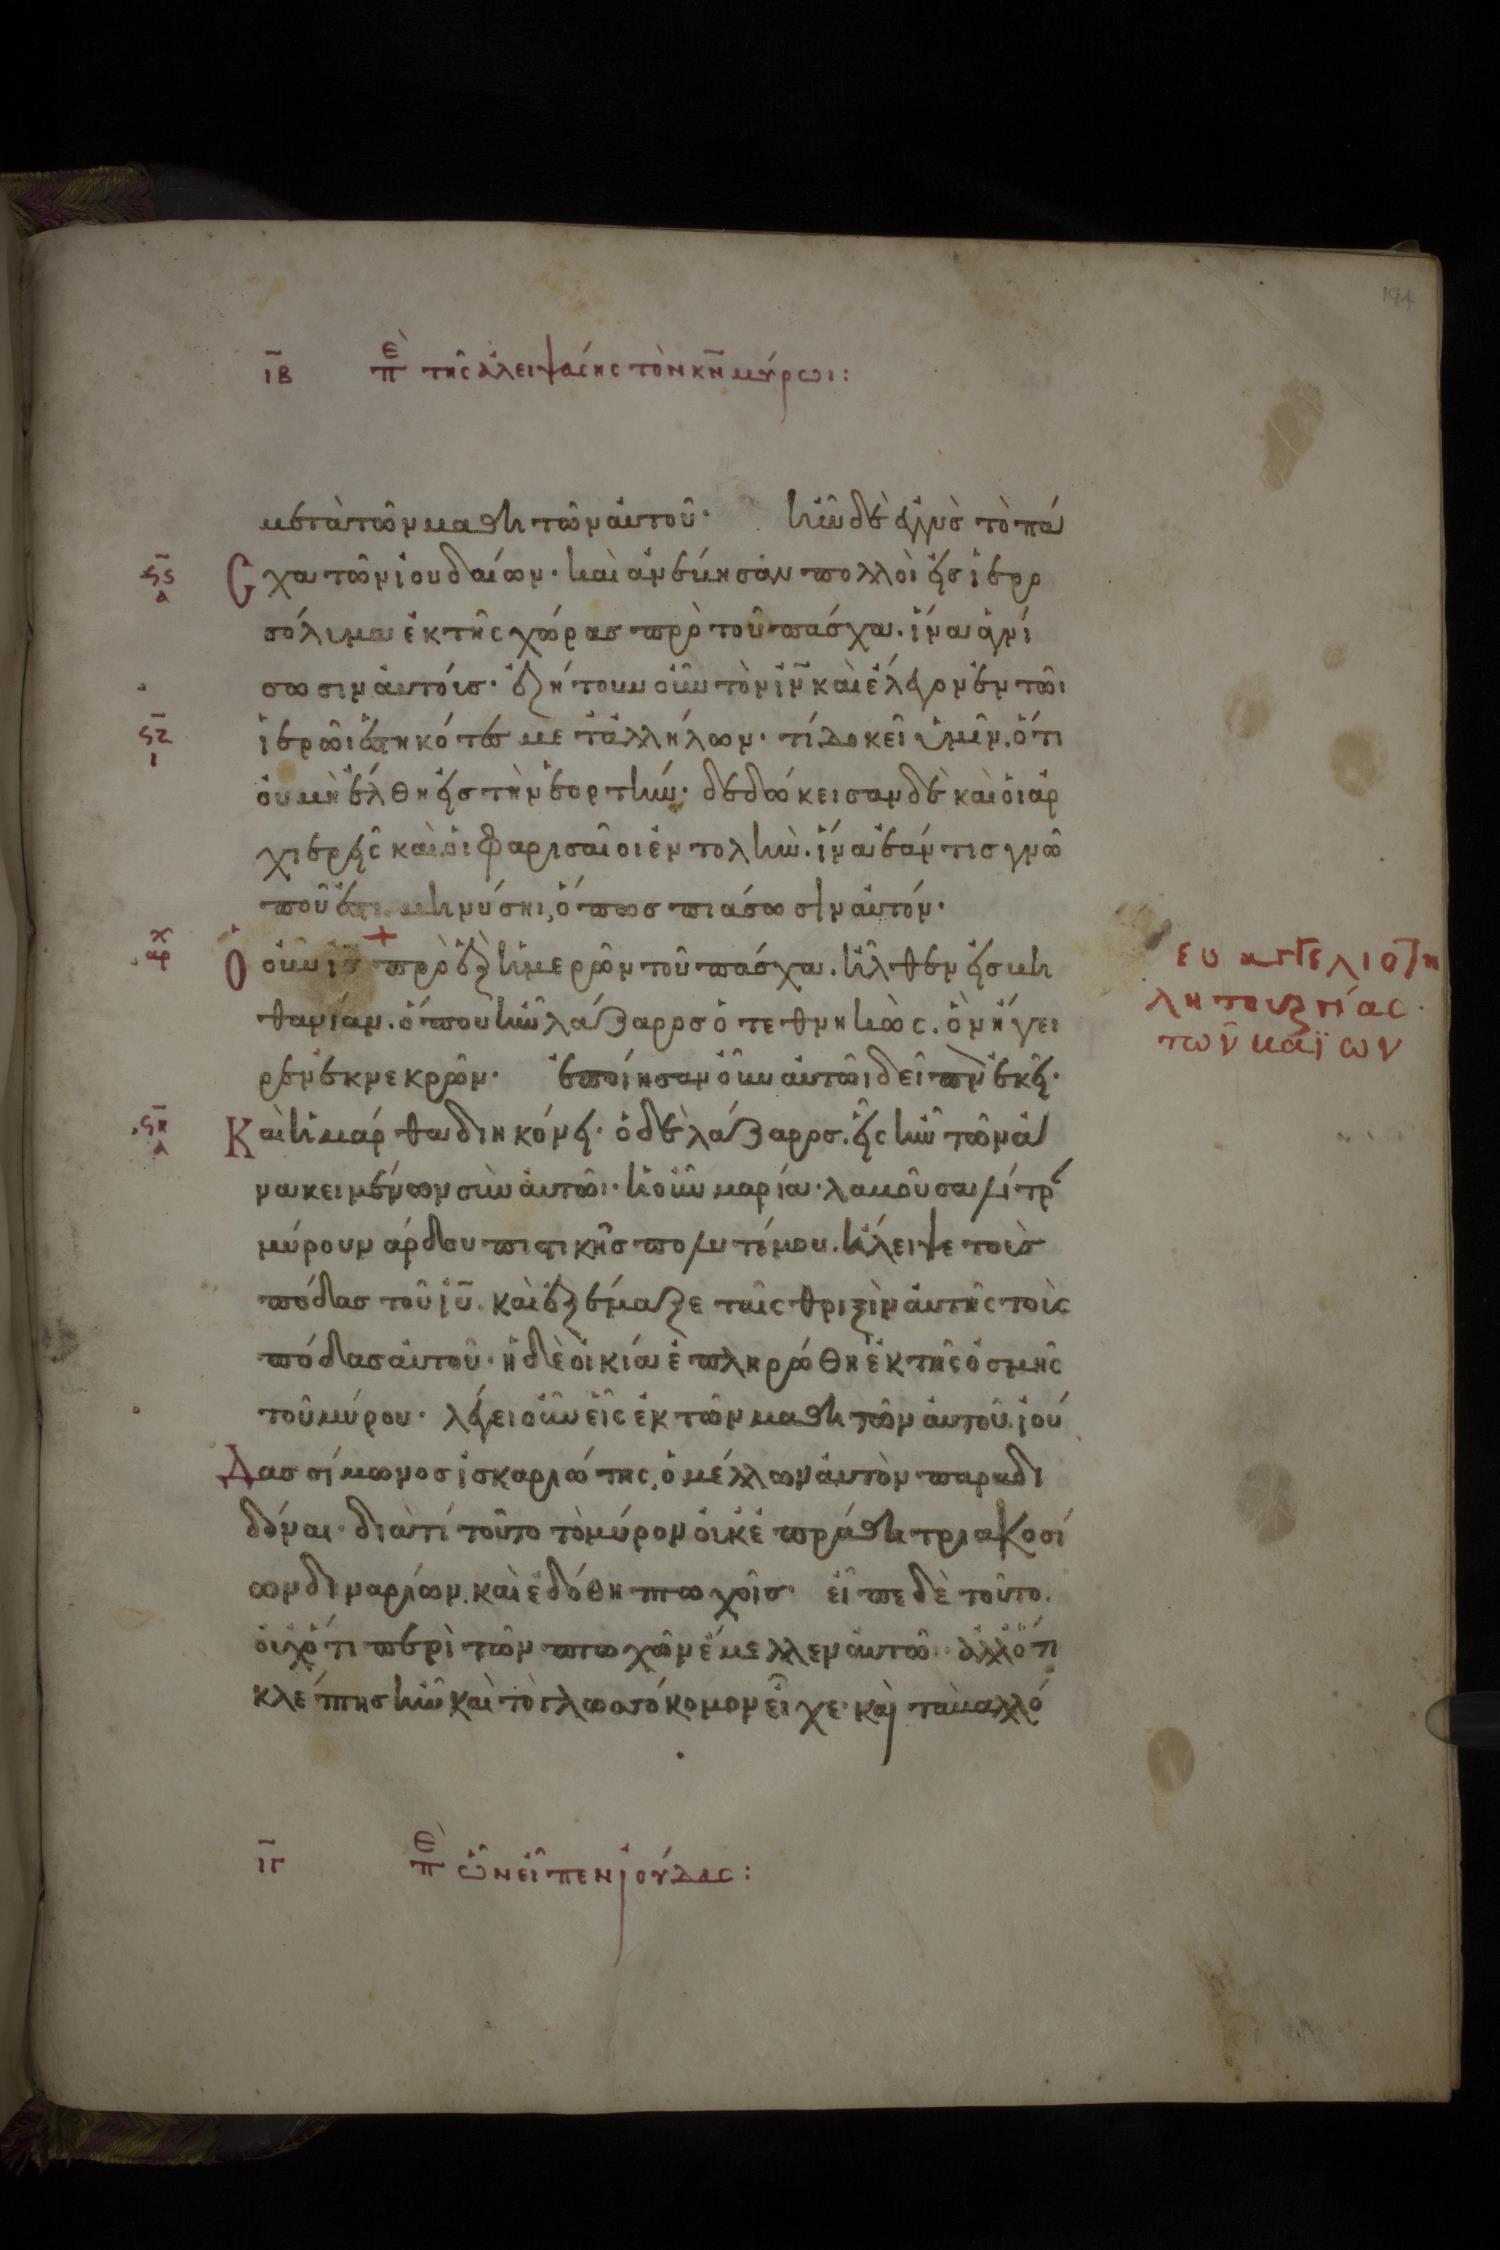 194
ιβ πε τῆς ἀλειψάσης τὸν κν̄ μύρωι:
μετὰ τῶν μαθητῶν αὐτοῦ· ἠν δὲ ἐγγὺς τὸ πά
ϟϛ α
Ϲχα τῶν ἰουδαίων· καὶ ἀνέβησαν πολλοὶ εἰς ἱερο
σόλυμα ἐκ τῆς χώρας πρὸ τοῦ πάσχα. ἵνα ἁγνί
σωσιν αὑτούς· ἐζήτουν οὖν τὸν ἰν̄ καὶ ἔλεγον ἐν τῶι
ϟζ ι
ἱερῶι ἑστηκότες μετ' ἀλλήλων· τί δοκεῖ ὑμῖν. ὅτι
οὐ μὴ ἔλθη εἰς τὴν ἑορτήν· δεδώκεισαν δὲ καὶ οἱ ἀρ
χιερεῖς καὶ οἱ φαρισαῖοι ἐντολὴν. ἵνα ἐάν τις γνῶ
ποῦ ἐστι μηνύσηι, ὅπως πιάσωσιν αὐτόν·
αρχ
Ὁ οὖν ἰς̄ + πρὸ ἓξ ἡμερῶν τοῦ πάσχα. ἦλθεν εἰς βη
θανίαν. ὅπου ἦν λάζαρος ὁ τεθνηκὼς. ὃν ἤγει
ρεν ἐκ νεκρῶν· ἐποίησαν οὖν αὐτῶι δεῖπνὸν ἐκεῖ·
ϟη α
Καὶ ἡ μάρθα διηκόνει· ὁ δὲ λάζαρος. εἷς ἦν τῶν ἀ
νακειμένων σὺν αὐτῶι· ἡ οὖν μαρία· λαβοῦσα λίτρ
μύρου ναρδου πιστικῆς πολυτίμου. ἤλειψε τοὺς
πόδας τοῦ ἰῦ. καὶ ἐξέμαξε ταῖς θριξὶν αὐτῆς τοὺς
πόδας αὐτοῦ· ἡ δὲ οἰκία ἐπληρώθη ἐκ τῆς ὀσμῆς
τοῦ μύρου· λέγει οὖν εἷς ἐκ τῶν μαθητῶν αὐτοῦ ἰού
Δας σίμωνος ἰσκαριώτης, ὁ μέλλων αὐτὸν παραδι
δόναι· διατί τοῦτο τὸ μύρον οὐκ ἐπράθη τριακοσί
ων δηναρίων. καὶ ἐδόθη πτωχοῖς· εἶπε δὲ τοῦτο.
οὐχ ὅτι περὶ τῶν πτωχῶν ἔμελλεν αὐτῶ· ἀλλ' ὅτι
κλέπτης ἦν καὶ τὸ γλωσσόκομον εἶχε· καὶ τὰ βαλλό
ιγ πε ὧν εἶπεν ἰούδας:
τῶν βαΐων